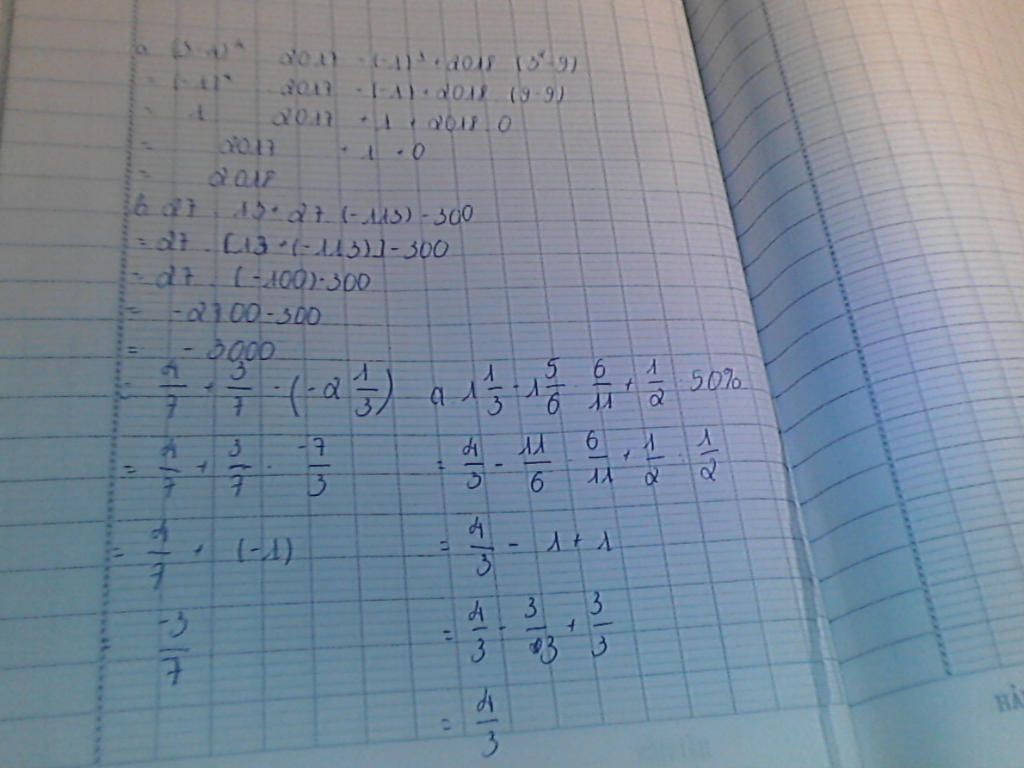 = (-1)⁴ 2017 - (-1) + 2018 (9-9)
= 1 2017 + 1 + 2018 0
= 2017 + 1 + 0
= 2018
b 27 . 13 + 27 (-113) - 300
= 27 . [13 + (-113)] - 300
= 27 (-100) - 300
= -2700 - 300
= -3000
= 4/7 + 3/7 · (-2 1/3)
= 4/7 + 3/7 · -7/3
= 4/7 + (-1)
= -3/7
a 1 1/3 - 1 5/6 · 6/11 + 1/2 : 50%
= 4/3 - 11/6 · 6/11 + 1/2 : 1/2
= 4/3 - 1 + 1
= 4/3 - 3/3 + 3/3
= 4/3